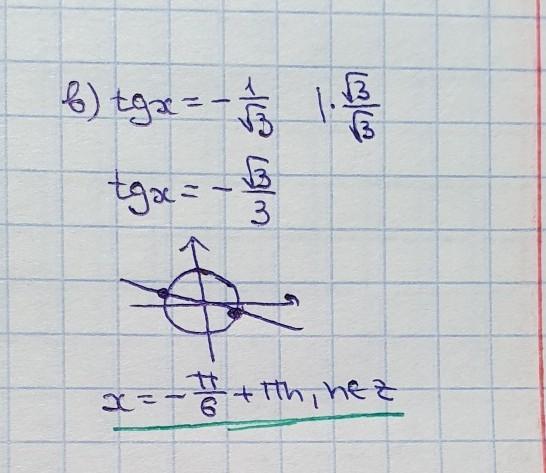 в) tgx = -1/√3 |·√3/√3
tgx = -√3/3
x = -π/6 + πn, n∈z